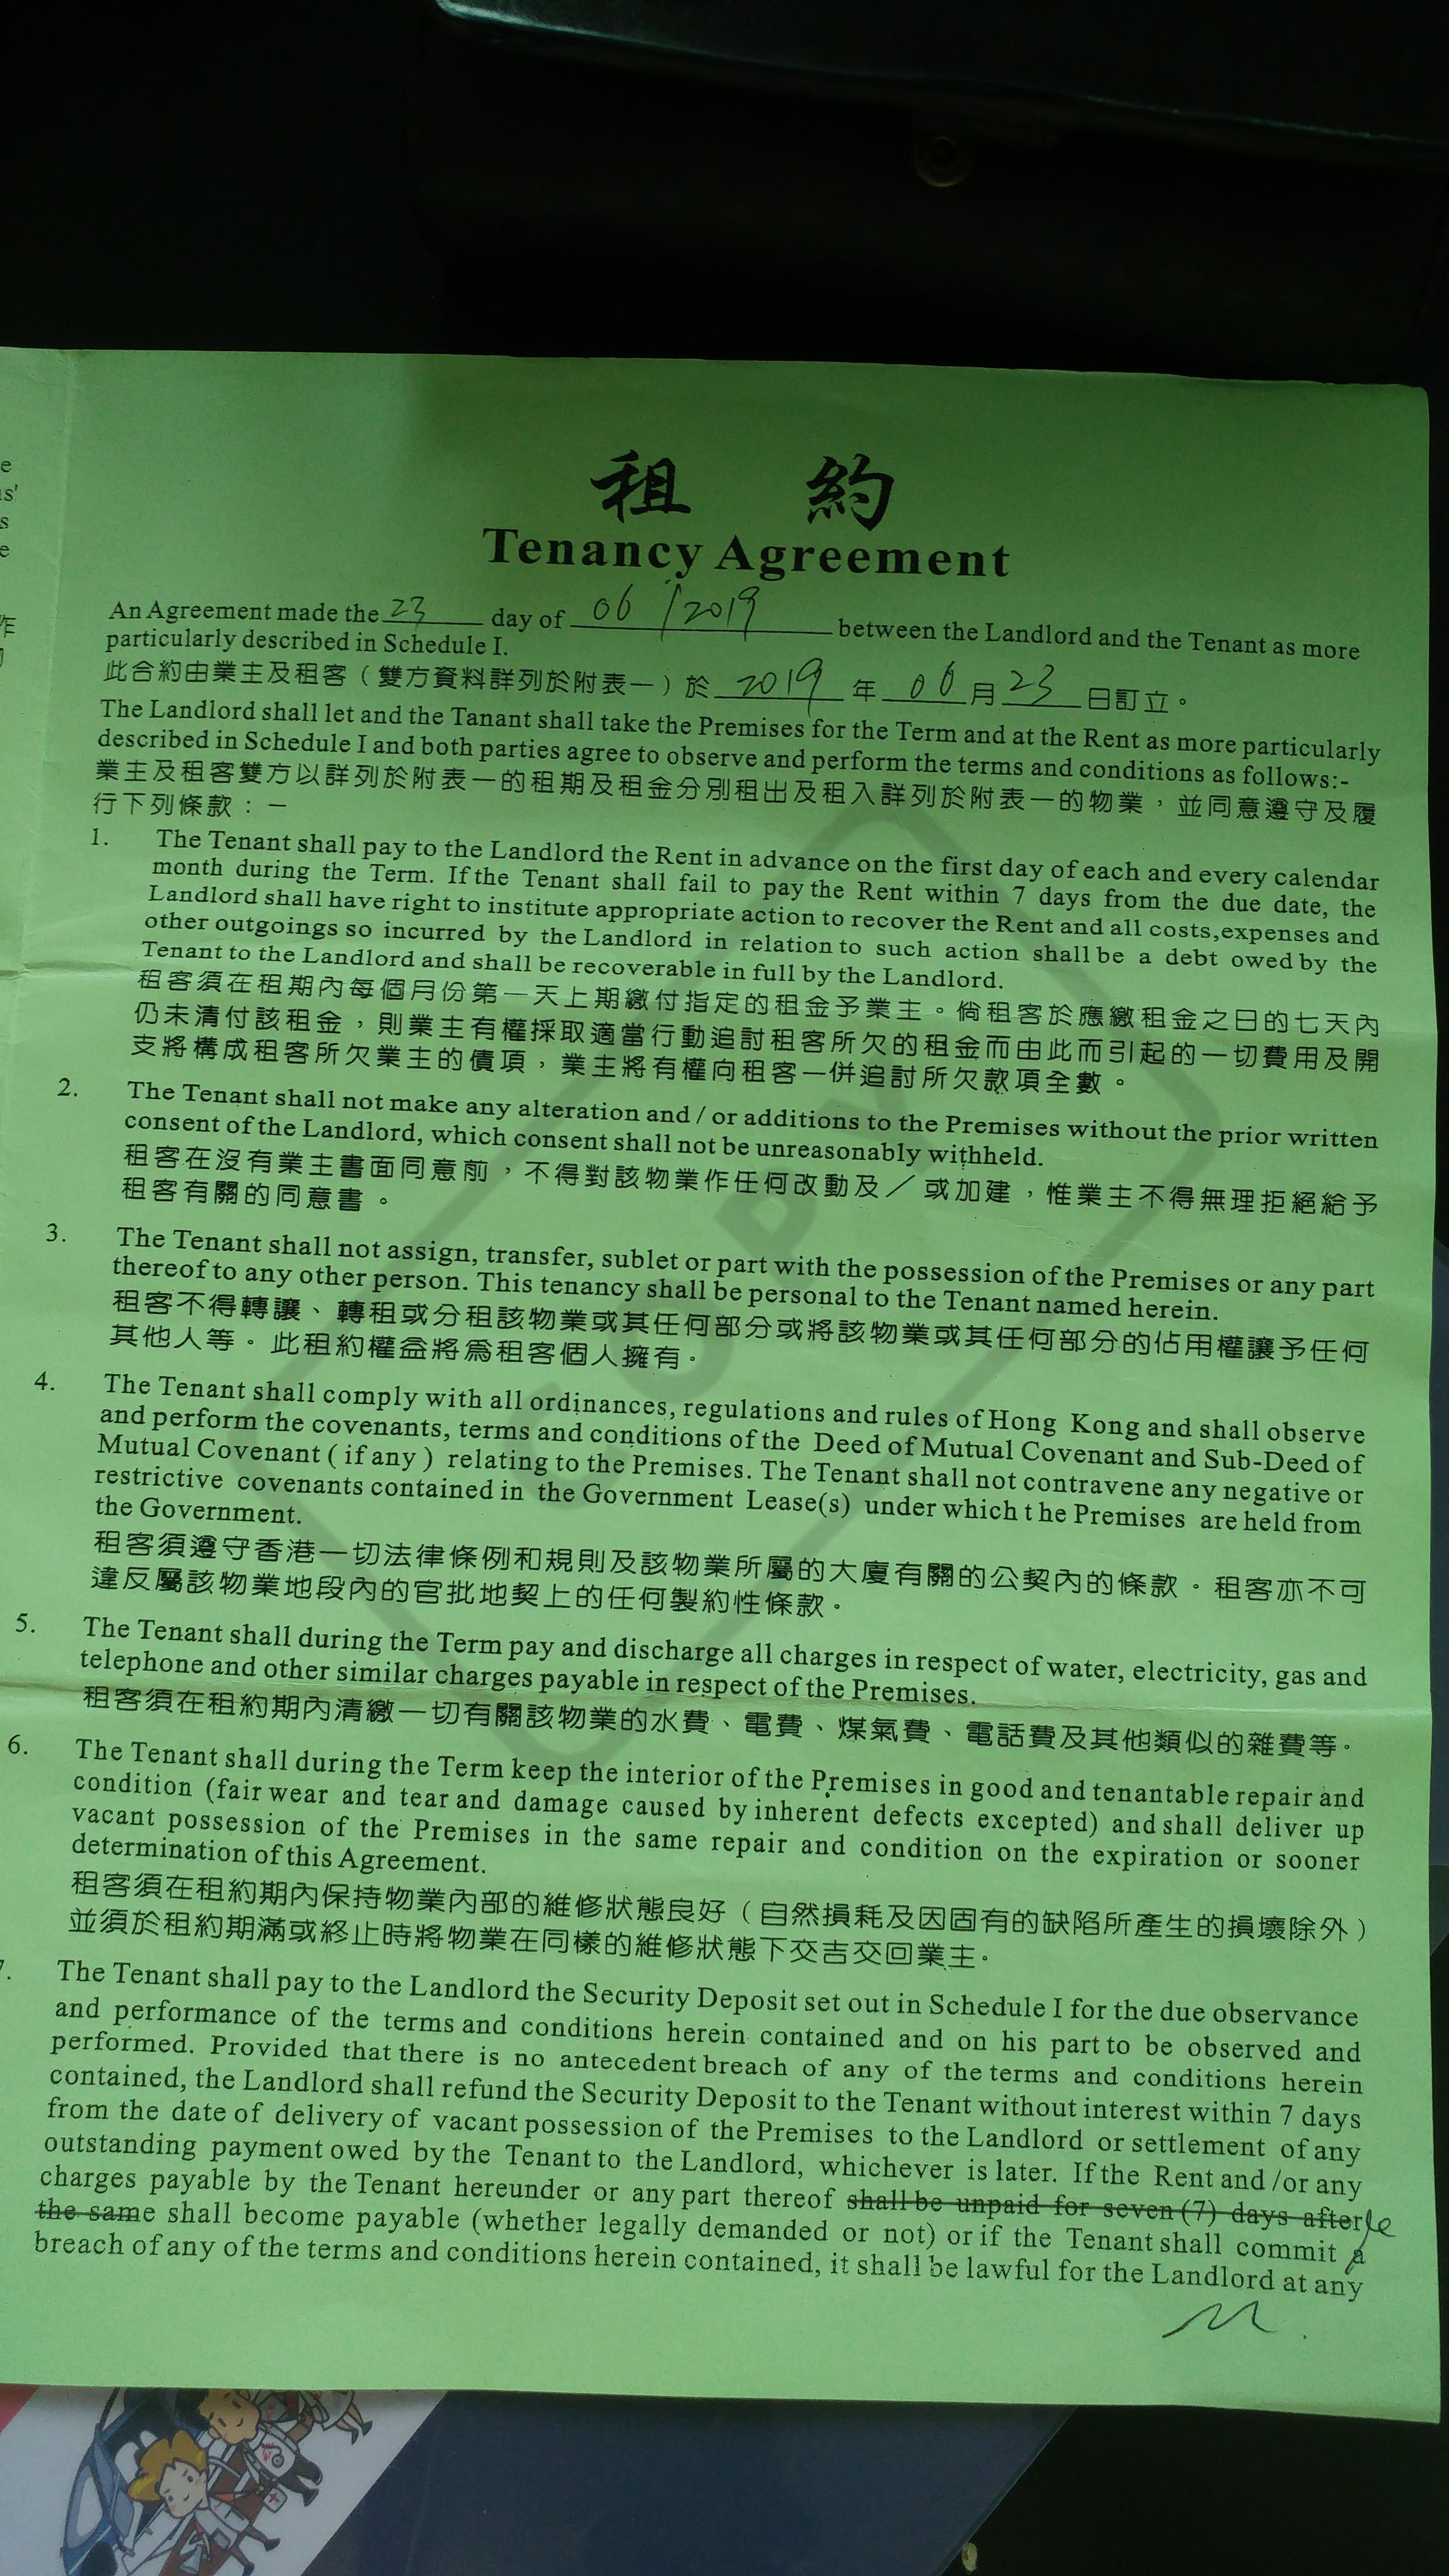 e
s'
s
e
作
租 約
Tenancy Agreement
An Agreement made the 23 day of 06/2019 between the Landlord and the Tenant as more
particularly described in Schedule I.
此合約由業主及租客（雙方資料詳列於附表一）於 2019 年 06 月 23 日訂立。
The Landlord shall let and the Tanant shall take the Premises for the Term and at the Rent as more particularly
described in Schedule I and both parties agree to observe and perform the terms and conditions as follows:-
業主及租客雙方以詳列於附表一的租期及租金分別租出及租入詳列於附表一的物業，並同意遵守及履
行下列條款：－
1. The Tenant shall pay to the Landlord the Rent in advance on the first day of each and every calendar
month during the Term. If the Tenant shall fail to pay the Rent within 7 days from the due date, the
Landlord shall have right to institute appropriate action to recover the Rent and all costs,expenses and
other outgoings so incurred by the Landlord in relation to such action shall be a debt owed by the
Tenant to the Landlord and shall be recoverable in full by the Landlord.
租客須在租期內每個月份第一天上期繳付指定的租金予業主。倘租客於應繳租金之日的七天內
仍未清付該租金，則業主有權採取適當行動追討租客所欠的租金而由此而引起的一切費用及開
支將構成租客所欠業主的債項，業主將有權向租客一併追討所欠款項全數。
2. The Tenant shall not make any alteration and / or additions to the Premises without the prior written
consent of the Landlord, which consent shall not be unreasonably withheld.
租客在沒有業主書面同意前，不得對該物業作任何改動及／或加建，惟業主不得無理拒絕給予
租客有關的同意書。
3. The Tenant shall not assign, transfer, sublet or part with the possession of the Premises or any part
thereof to any other person. This tenancy shall be personal to the Tenant named herein.
租客不得轉讓、轉租或分租該物業或其任何部分或將該物業或其任何部分的佔用權讓予任何
其他人等。此租約權益將為租客個人擁有。
4. The Tenant shall comply with all ordinances, regulations and rules of Hong Kong and shall observe
and perform the covenants, terms and conditions of the Deed of Mutual Covenant and Sub-Deed of
Mutual Covenant ( if any ) relating to the Premises. The Tenant shall not contravene any negative or
restrictive covenants contained in the Government Lease(s) under which t he Premises are held from
the Government.
租客須遵守香港一切法律條例和規則及該物業所屬的大廈有關的公契內的條款。租客亦不可
違反屬該物業地段內的官批地契上的任何製約性條款。
5. The Tenant shall during the Term pay and discharge all charges in respect of water, electricity, gas and
telephone and other similar charges payable in respect of the Premises.
租客須在租約期內清繳一切有關該物業的水費、電費、煤氣費、電話費及其他類似的雜費等。
6. The Tenant shall during the Term keep the interior of the Premises in good and tenantable repair and
condition (fair wear and tear and damage caused by inherent defects excepted) and shall deliver up
vacant possession of the Premises in the same repair and condition on the expiration or sooner
determination of this Agreement.
租客須在租約期內保持物業內部的維修狀態良好（自然損耗及因固有的缺陷所產生的損壞除外）
並須於租約期滿或終止時將物業在同樣的維修狀態下交吉交回業主。
7. The Tenant shall pay to the Landlord the Security Deposit set out in Schedule I for the due observance
and performance of the terms and conditions herein contained and on his part to be observed and
performed. Provided that there is no antecedent breach of any of the terms and conditions herein
contained, the Landlord shall refund the Security Deposit to the Tenant without interest within 7 days
from the date of delivery of vacant possession of the Premises to the Landlord or settlement of any
outstanding payment owed by the Tenant to the Landlord, whichever is later. If the Rent and /or any
charges payable by the Tenant hereunder or any part thereof shall be unpaid for seven (7) days after
the same shall become payable (whether legally demanded or not) or if the Tenant shall commit a
breach of any of the terms and conditions herein contained, it shall be lawful for the Landlord at any
COPY